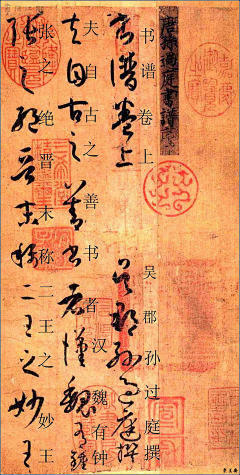 唐孫過庭書譜
书谱卷上 吴郡孙过庭撰
書譜卷上 吳郡孫過庭撰
夫自古之善书者汉魏有钟
夫自古之善書者漢魏有鍾
张之绝晋末称二王之妙王
張之絕晉末稱二王之妙王